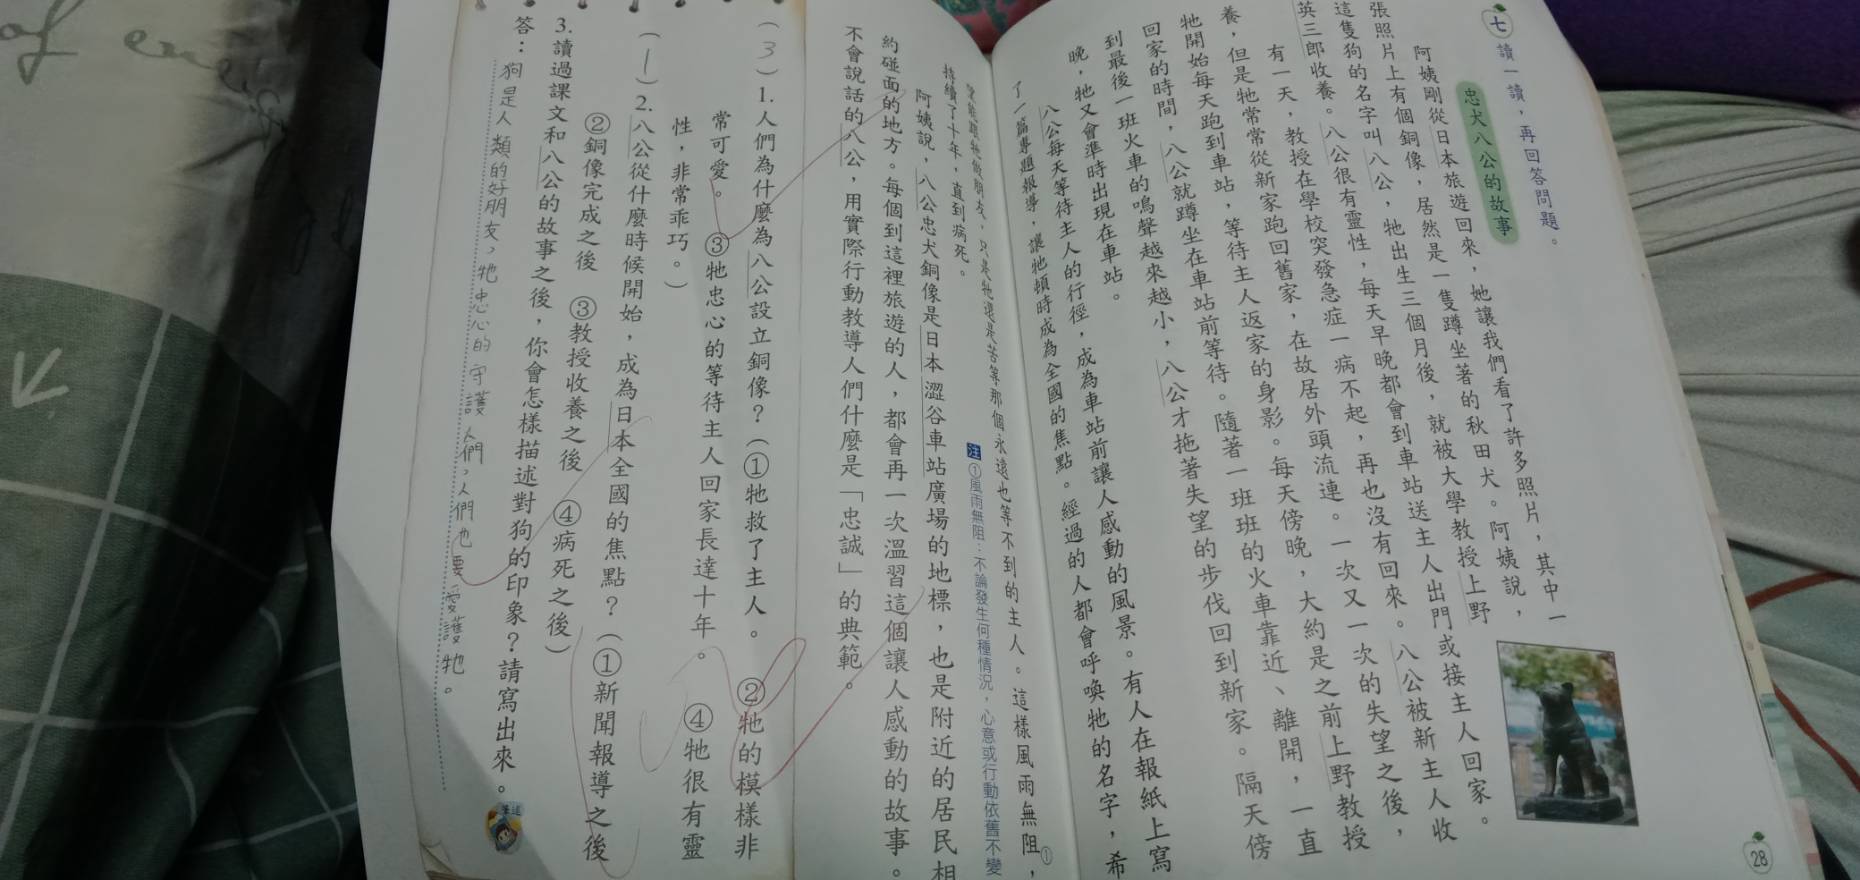 七 讀一讀，再回答問題。
忠犬八公的故事
阿姨剛從日本旅遊回來，她讓我們看了許多照片，其中一
張照片上有個銅像，居然是一隻蹲坐著的秋田犬。阿姨說，
這隻狗的名字叫八公，牠出生三個月後，就被大學教授上野
英三郎收養。八公很有靈性，每天早晚都會到車站送主人出門或接主人回家。
有一天，教授在學校突發急症一病不起，再也沒有回來。八公被新主人收
養，但是牠常常從新家跑回舊家，在故居外頭流連。一次又一次的失望之後，
牠開始每天跑到車站，等待主人返家的身影。每天傍晚，大約是之前上野教授
回家的時間，八公就蹲坐在車站前等待。隨著一班班的火車靠近、離開，一直
到最後一班火車的鳴聲越來越小，八公才拖著失望的步伐回到新家。隔天傍
晚，牠又會準時出現在車站。
八公每天等待主人的行徑，成為車站前讓人感動的風景。有人在報紙上寫
了一篇專題報導，讓牠頓時成為全國的焦點。經過的人都會呼喚牠的名字，希
望能跟牠做朋友，只是牠還是苦等那個永遠也等不到的主人。這樣風雨無阻①，
持續了十年，直到病死。
注①風雨無阻：不論發生何種情況，心意或行動依舊不變
阿姨說，八公忠犬銅像是日本澀谷車站廣場的地標，也是附近的居民相
約碰面的地方。每個到這裡旅遊的人，都會再一次溫習這個讓人感動的故事。
不會說話的八公，用實際行動教導人們什麼是「忠誠」的典範。
（3）1.人們為什麼為八公設立銅像？（①牠救了主人。 ②牠的模樣非
常可愛。 ③牠忠心的等待主人回家長達十年。 ④牠很有靈
性，非常乖巧。）
（1）2.八公從什麼時候開始，成為日本全國的焦點？（①新聞報導之後
②銅像完成之後 ③教授收養之後 ④病死之後）
3.讀過課文和八公的故事之後，你會怎樣描述對狗的印象？請寫出來。
答：狗是人類的好朋友，牠忠心的守護人們，人們也要愛護牠。
28